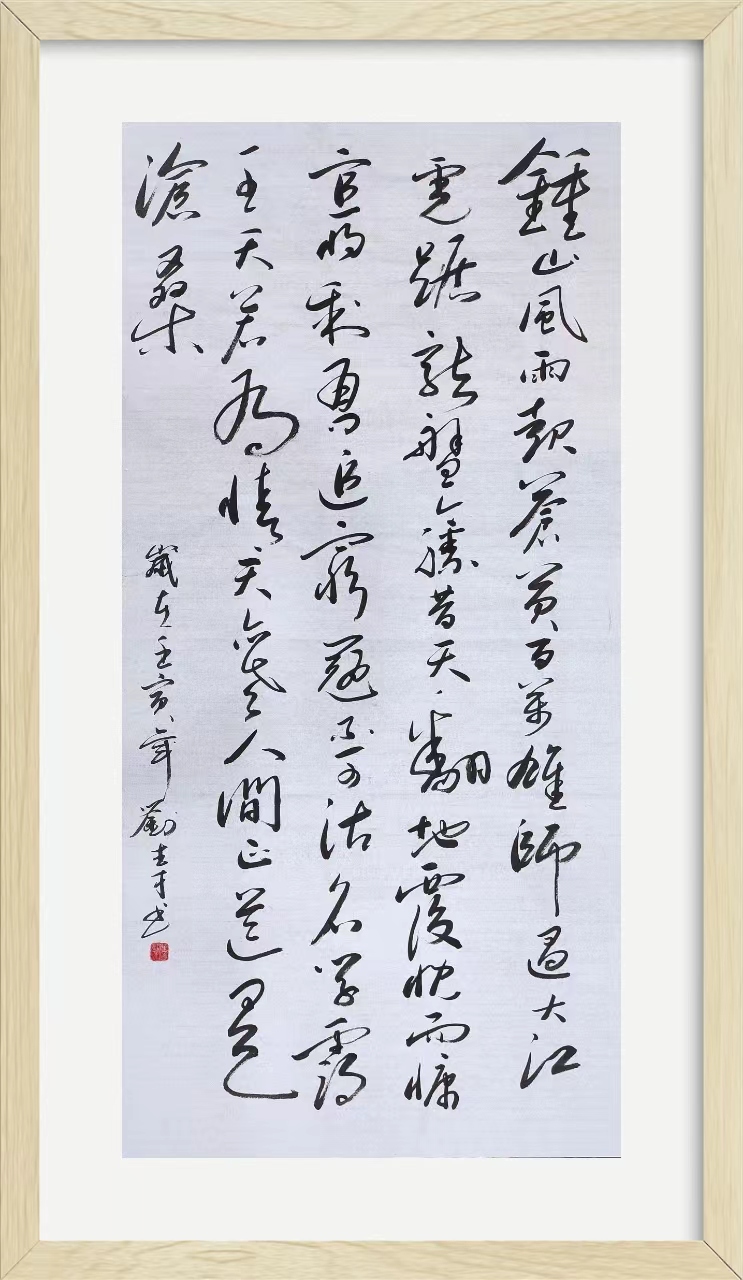 鍾山風雨起蒼黃百萬雄師過大江
虎踞龍盤今勝昔天翻地覆慨而慷
宜將剩勇追窮寇不可沽名學霸
王天若有情天亦老人間正道是
滄桑
歲在壬寅年 劉才書